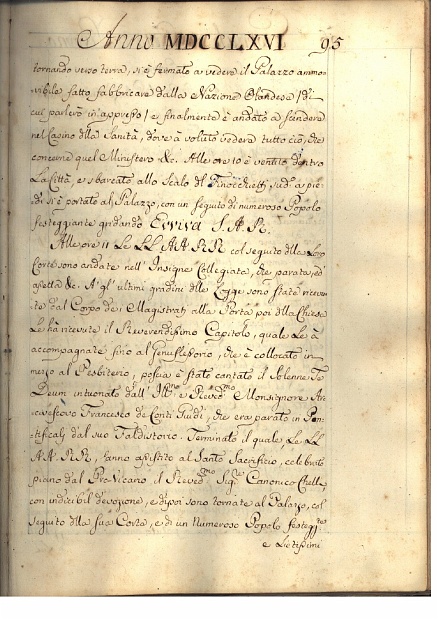 Anno MDCCLXVI 95
tornando verso terra, si è fermato a vedere il Palazzo ammo-
vibile fatto fabbricare dalla Nazione Olandese (di
cui parlerò in appresso) e finalmente è andato a scendere
nel Casino dlla Sanità, dove à voluto vedere tutto ciò, che
concerne quel Ministero &c. Alle ore 10 è ventito dentro
la Città, e sbarcato allo Scalo dl Finocchietti sud.° a pie-
di si è portato al Palazzo, con un seguito di numeroso Popolo
festeggiante gridando Evviva S. A. R.
Alle ore 11 Le LL. AA. RR. col seguito dlla Loro
Corte sono andate nell' Insigne Collegiata, che parata, ed
aspetta &c. A gl' ultimi gradini dlle Logge sono state ricevu-
te dal Corpo de i Magistrati, alla Porta poi dlla Chiesa
Le hà ricevute il Reverendissimo Capitolo, quale Le à
accompagnate sino al Genuflessorio, che è collocato in
mezzo al Presbiterio, poscia è stato cantato il Solenne Te
Deum intuonato dall' Ill.mo e Rev.mo Monsignore Ar-
civescovo Francesco de Conti Guidi, che era parato in Pon-
tificali dal suo Faldistorio. Terminato il quale, Le LL.
AA. RR. anno assistito al Santo Sacrificio, celebrato
piano dal Pro Vicario il Reved.mo Sig.re Canonico
con indicibil devozione, e dipoi sono tornate al Palazzo, col
seguito dlla sua Corte, e di un Numeroso Popolo festegg.te
e Lietissimi